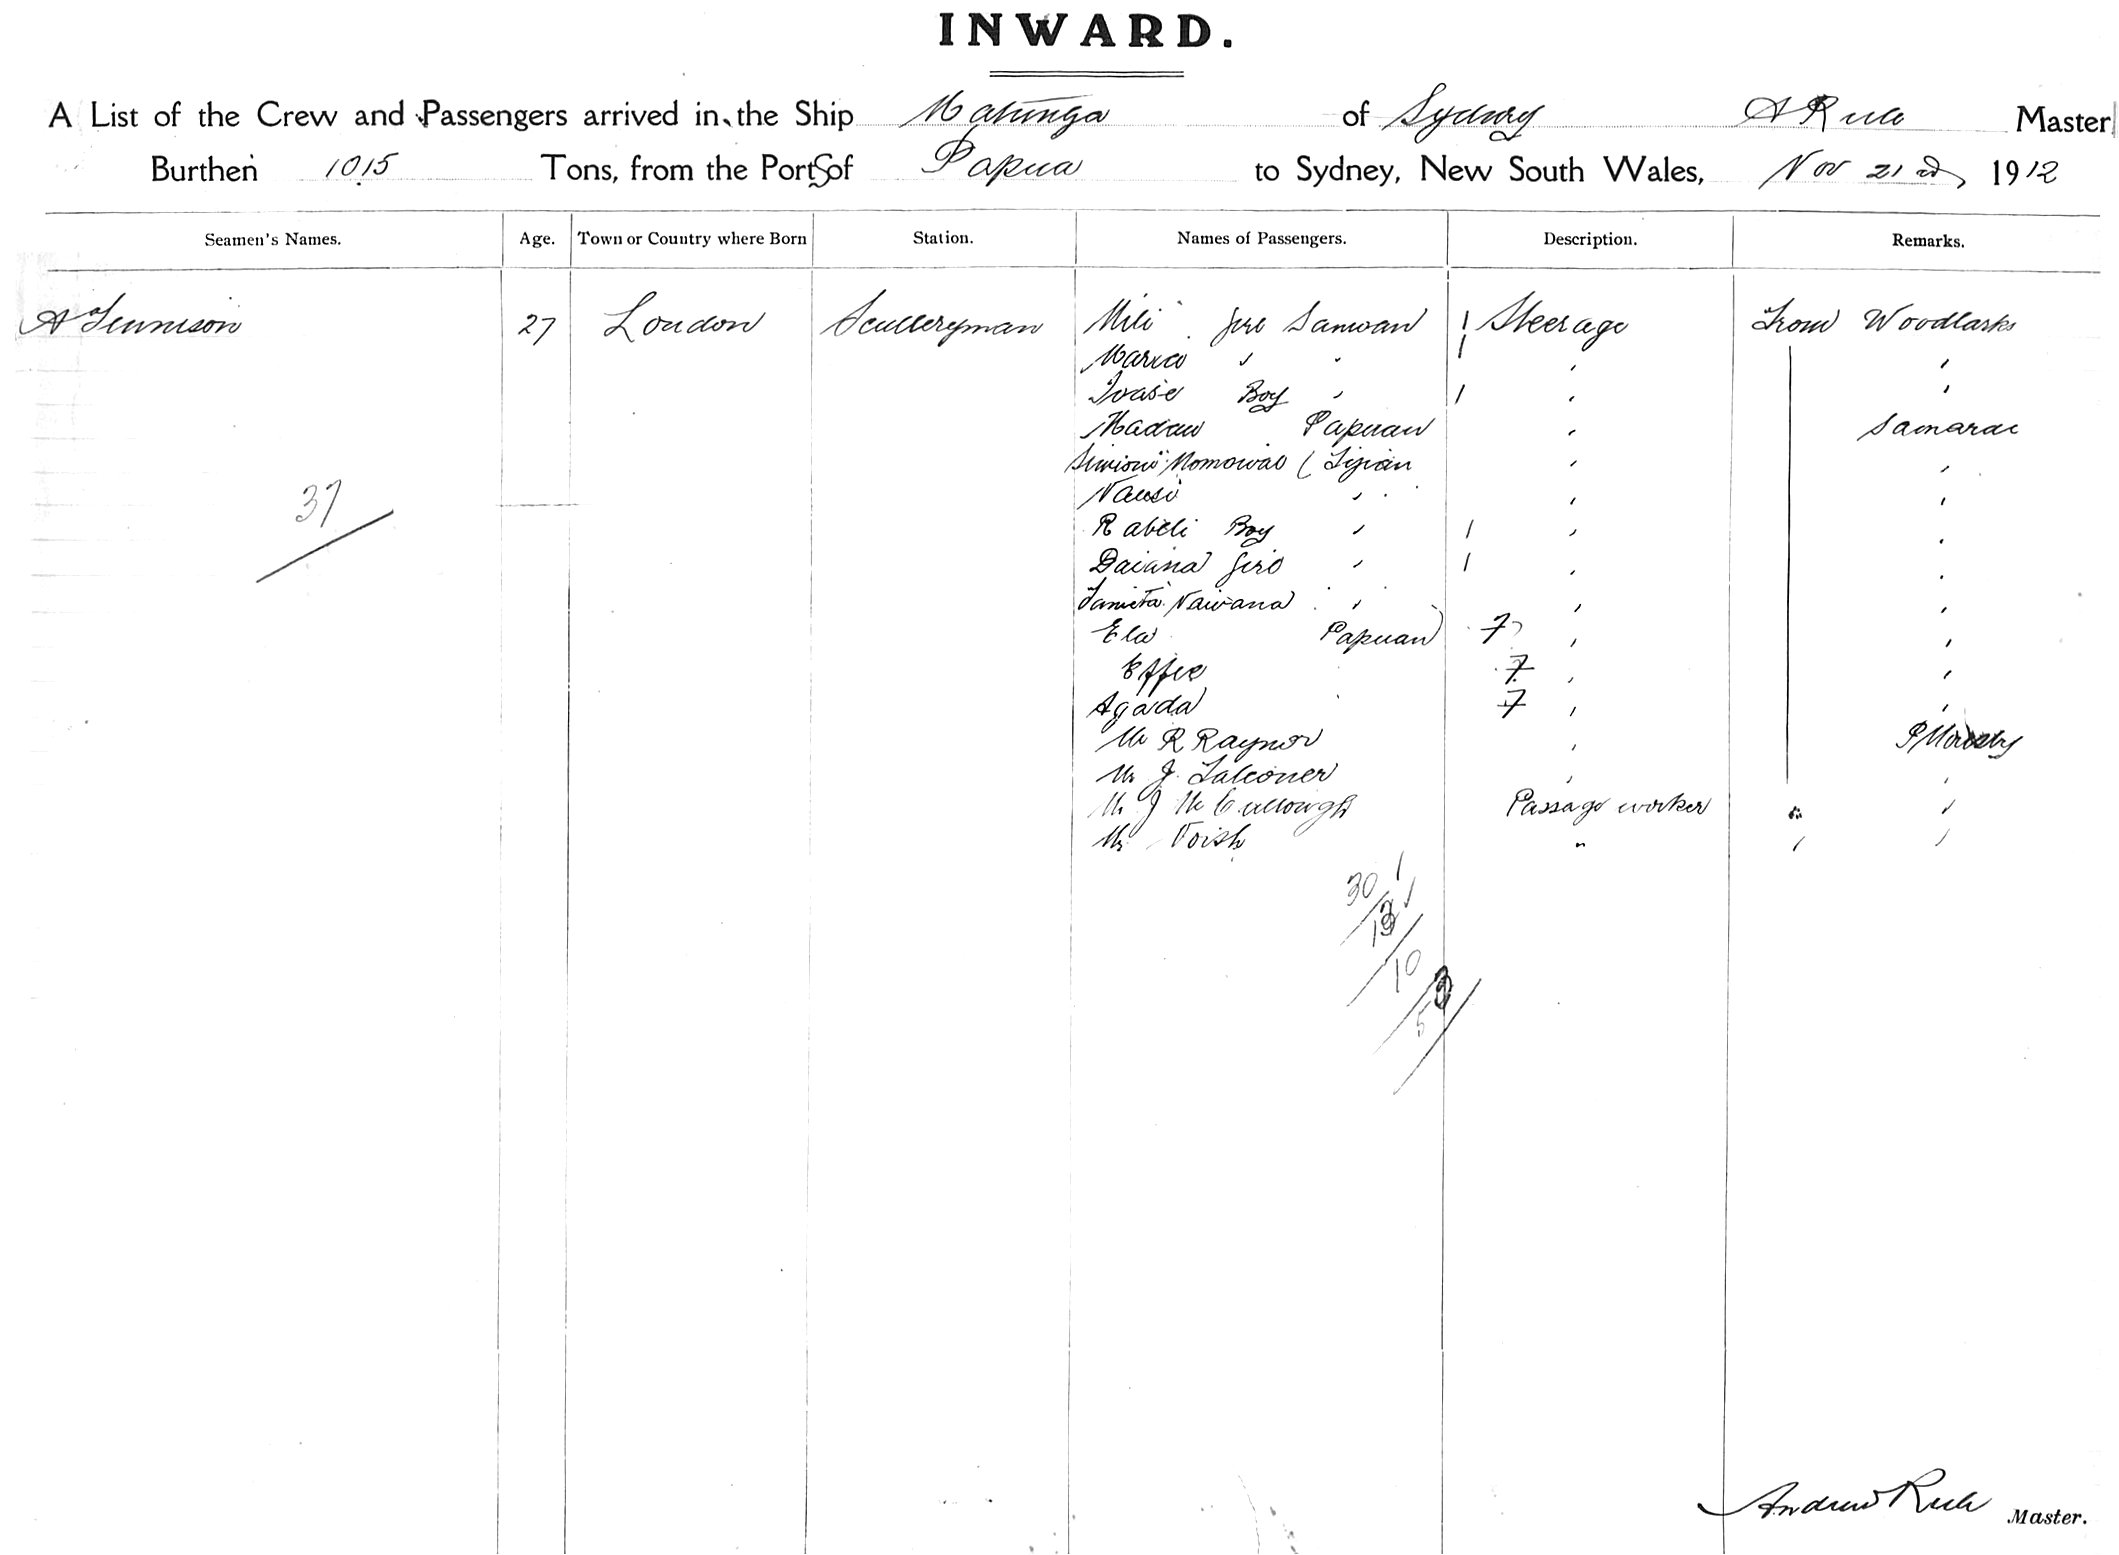 INWARD.
A List of the Crew and Passengers arrived in the Ship Matunga of Sydney A Rule Master
Burthen 1015 Tons, from the Ports of Papua to Sydney, New South Wales, Nov 21 1912
Seamen's Names. Age. Town or Country where Born Station. Names of Passengers. Description. Remarks.
A Tennison 27 London Sculleryman Mili girl Samoan 1 Steerage From Woodlarks
Maria " " 1 " "
Ioase Boy " 1 " "
Madau Papuan " Samarai
Simioni Momowao ( Fijian " "
Nausi " " "
37
Rabeli Boy " 1 " "
Daiana girl " 1 " "
Naivana " " "
Ela Papuan) 7 " "
Effie 7 " "
Agada 7 " "
Mr R Raynor " P Moresby
Mr J. Falconer " "
Mr J McCullough Passage worker "
Mr Voish " " "
30
10
Andrew Rule Master.